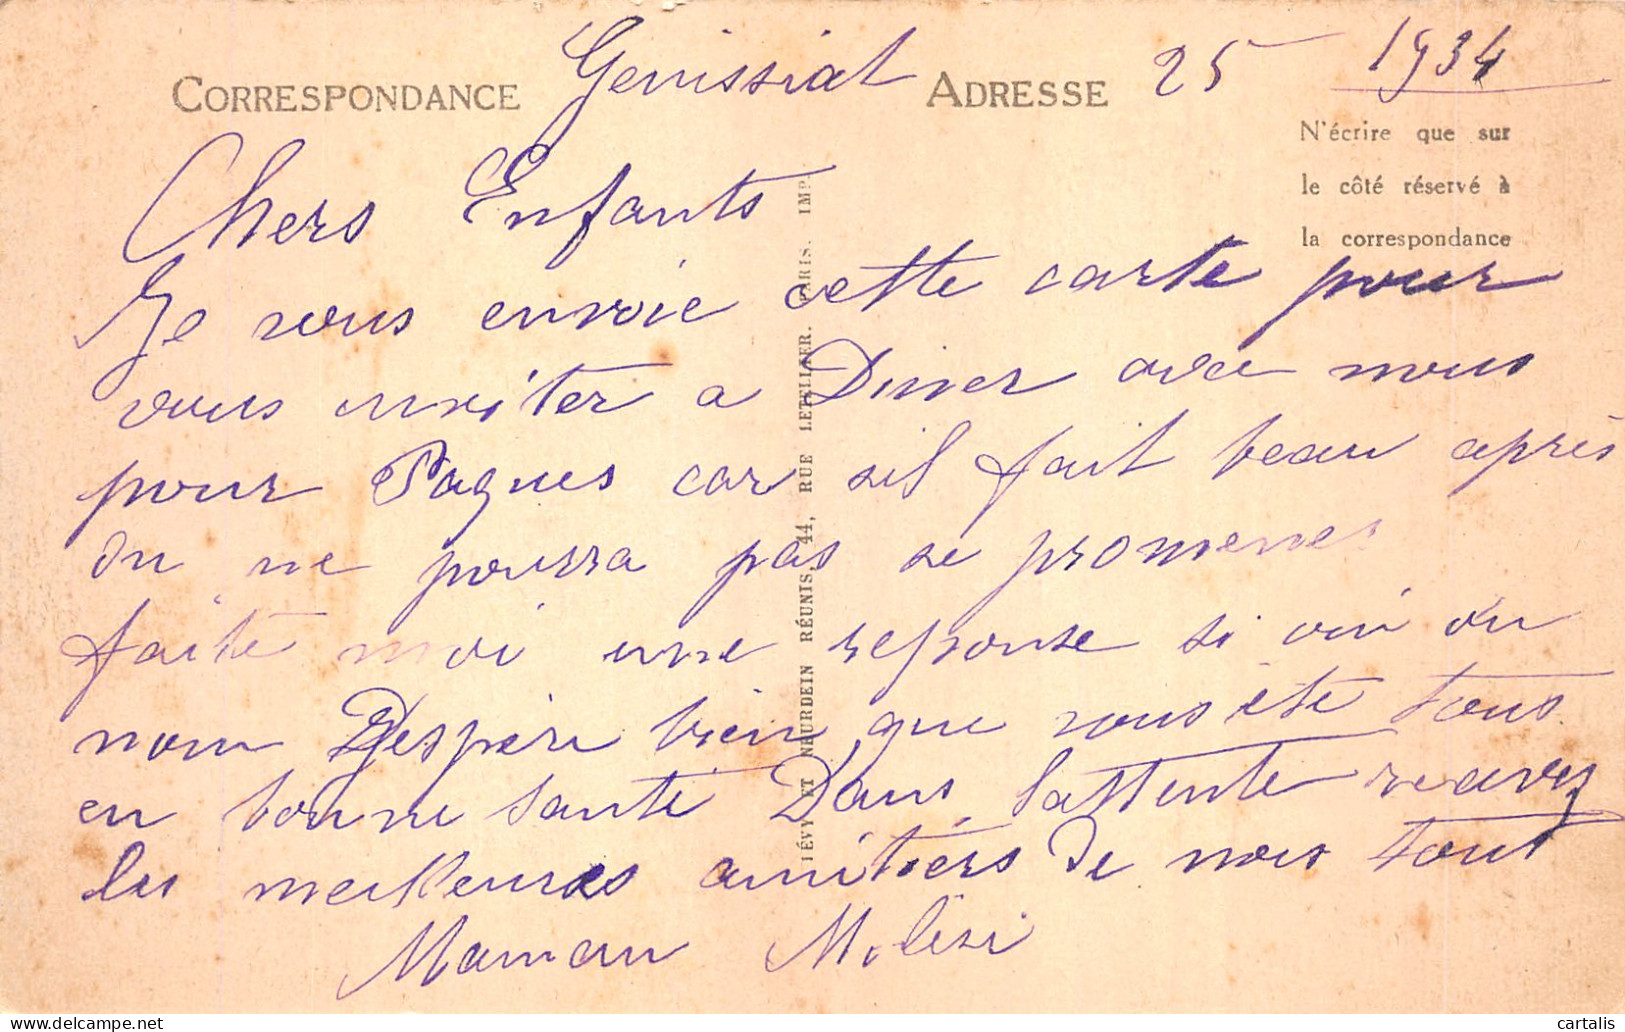 CORRESPONDANCE Genissiat ADRESSE 25 1934
N'écrire que sur
le côté réservé à
la correspondance
Chers Enfants
Je vous envoie cette carte pour
vous inviter a Diner avec nous
pour Paques car sil fait beau après
on ne pourra pas se promener
faite moi une reponse si oui ou
non Jespère bien que vous ête tous
en bonne santé Dans lattente recevez
les meilleures amitiés De nous tous
Maman
LÉVY ET NEURDEIN RÉUNIS, 44, RUE LETELLIER. PARIS. IMP.
delcampe.net
cartalis